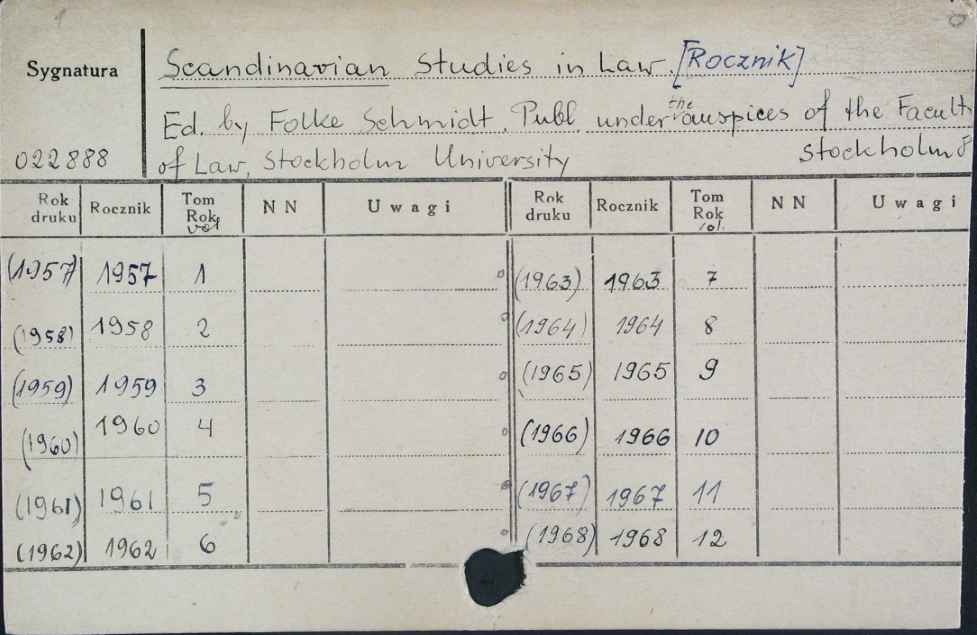 1
Scandinavian Studies in Law. [Rocznik]
Sygnatura
Ed. by Folke Schmidt. Publ. under the auspices of the Facult
022888 of Law, Stockholm University Stockholm 8
Rok druku Rocznik Tom Rok vol NN Uwagi Rok druku Rocznik Tom Rok vol. NN Uwagi
(1957) 1957 1 (1963) 1963 7
(1958) 1958 2 (1964) 1964 8
(1959) 1959 3 (1965) 1965 9
(1960) 1960 4 (1966) 1966 10
(1961) 1961 5 (1967) 1967 11
(1962) 1962 6 (1968) 1968 12